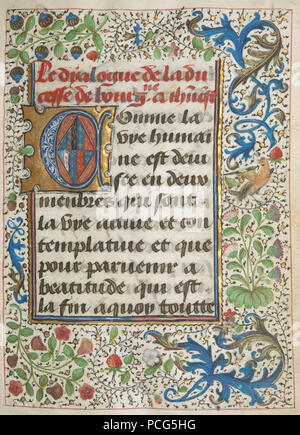 Le dyalogue de la du
cesse de bourg.ne a
Comme la
vye humai
ne est deui
see en deux
membres qui sont
la vye actiue et con
templatiue et que
pour paruenir a
beatitude qui est
la fin a quoy toutte
alamy
PCG5HG